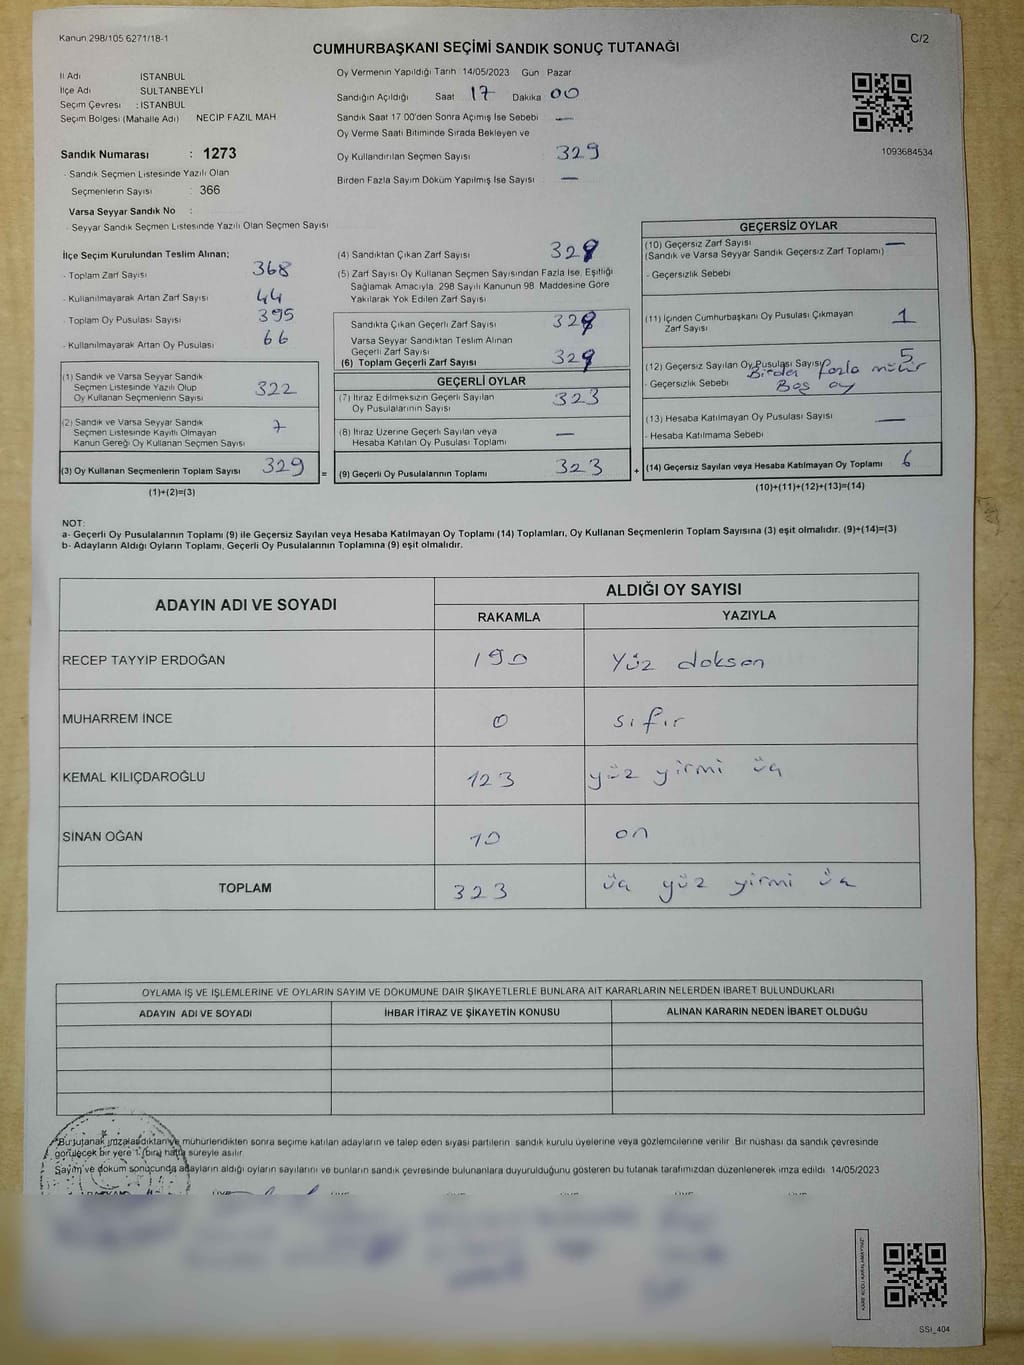 Kanun 298/105 6271/18-1
C/2
CUMHURBAŞKANI SEÇİMİ SANDIK SONUÇ TUTANAĞI
İl Adı İSTANBUL
İlçe Adı SULTANBEYLİ
Seçim Çevresi : İSTANBUL
Seçim Bölgesi (Mahalle Adı) NECİP FAZIL MAH
Sandık Numarası : 1273
- Sandık Seçmen Listesinde Yazılı Olan
Seçmenlerin Sayısı : 366
Varsa Seyyar Sandık No :
- Seyyar Sandık Seçmen Listesinde Yazılı Olan Seçmen Sayısı
Oy Vermenin Yapıldığı Tarih 14/05/2023 Gün Pazar
Sandığın Açıldığı Saat 17 Dakika 00
Sandık Saat 17 00'den Sonra Açımış İse Sebebi —
Oy Verme Saati Bitiminde Sırada Bekleyen ve
Oy Kullandırılan Seçmen Sayısı 329
Birden Fazla Sayım Döküm Yapılmış İse Sayısı —
1093684534
İlçe Seçim Kurulundan Teslim Alınan;
- Toplam Zarf Sayısı 368
- Kullanılmayarak Artan Zarf Sayısı 44
- Toplam Oy Pusulası Sayısı 395
- Kullanılmayarak Artan Oy Pusulası 66
(1) Sandık ve Varsa Seyyar Sandık
Seçmen Listesinde Yazılı Olup
Oy Kullanan Seçmenlerin Sayısı 322
(2) Sandık ve Varsa Seyyar Sandık
Seçmen Listesinde Kayıtlı Olmayan
Kanun Gereği Oy Kullanan Seçmen Sayısı 7
(3) Oy Kullanan Seçmenlerin Toplam Sayısı 329 =
(1)+(2)=(3)
(4) Sandıktan Çıkan Zarf Sayısı 329
(5) Zarf Sayısı Oy Kullanan Seçmen Sayısından Fazla İse, Eşitliği
Sağlamak Amacıyla, 298 Sayılı Kanunun 98. Maddesine Göre
Yakılarak Yok Edilen Zarf Sayısı
Sandıkta Çıkan Geçerli Zarf Sayısı 329
Varsa Seyyar Sandıktan Teslim Alınan
Geçerli Zarf Sayısı
(6) Toplam Geçerli Zarf Sayısı 329
GEÇERLİ OYLAR
(7) İtiraz Edilmeksizin Geçerli Sayılan
Oy Pusulalarının Sayısı 323
(8) İtiraz Üzerine Geçerli Sayılan veya
Hesaba Katılan Oy Pusulası Toplamı —
(9) Geçerli Oy Pusulalarının Toplamı 323 +
GEÇERSİZ OYLAR
(10) Geçersiz Zarf Sayısı —
(Sandık ve Varsa Seyyar Sandık Geçersiz Zarf Toplamı)
- Geçersizlik Sebebi
(11) İçinden Cumhurbaşkanı Oy Pusulası Çıkmayan
Zarf Sayısı 1
(12) Geçersiz Sayılan Oy Pusulası Sayısı 5
Birden fazla mühür
- Geçersizlik Sebebi Boş oy
(13) Hesaba Katılmayan Oy Pusulası Sayısı —
- Hesaba Katılmama Sebebi
(14) Geçersiz Sayılan veya Hesaba Katılmayan Oy Toplamı 6
(10)+(11)+(12)+(13)=(14)
NOT:
a- Geçerli Oy Pusulalarının Toplamı (9) ile Geçersiz Sayılan veya Hesaba Katılmayan Oy Toplamı (14) Toplamları, Oy Kullanan Seçmenlerin Toplam Sayısına (3) eşit olmalıdır. (9)+(14)=(3)
b- Adayların Aldığı Oyların Toplamı, Geçerli Oy Pusulalarının Toplamına (9) eşit olmalıdır.
ADAYIN ADI VE SOYADI
ALDIĞI OY SAYISI
RAKAMLA YAZIYLA
RECEP TAYYİP ERDOĞAN 190 Yüz doksan
MUHARREM İNCE 0 sıfır
KEMAL KILIÇDAROĞLU 123 yüz yirmi üç
SİNAN OĞAN 10 on
TOPLAM 323 üç yüz yirmi üç
OYLAMA İŞ VE İŞLEMLERİNE VE OYLARIN SAYIM VE DÖKÜMÜNE DAİR ŞİKAYETLERLE BUNLARA AİT KARARLARIN NELERDEN İBARET BULUNDUKLARI
ADAYIN ADI VE SOYADI İHBAR İTİRAZ VE ŞİKAYETİN KONUSU ALINAN KARARIN NEDEN İBARET OLDUĞU
*Bu tutanak imzalandıktan ve mühürlendikten sonra seçime katılan adayların ve talep eden siyasi partilerin sandık kurulu üyelerine veya gözlemcilerine verilir. Bir nüshası da sandık çevresinde
görülecek bir yere 1 (bir) hafta süreyle asılır.
Sayım ve döküm sonucunda adayların aldığı oyların sayılarını ve bunların sandık çevresinde bulunanlara duyurulduğunu gösteren bu tutanak tarafımızdan düzenlenerek imza edildi. 14/05/2023
SSI_404